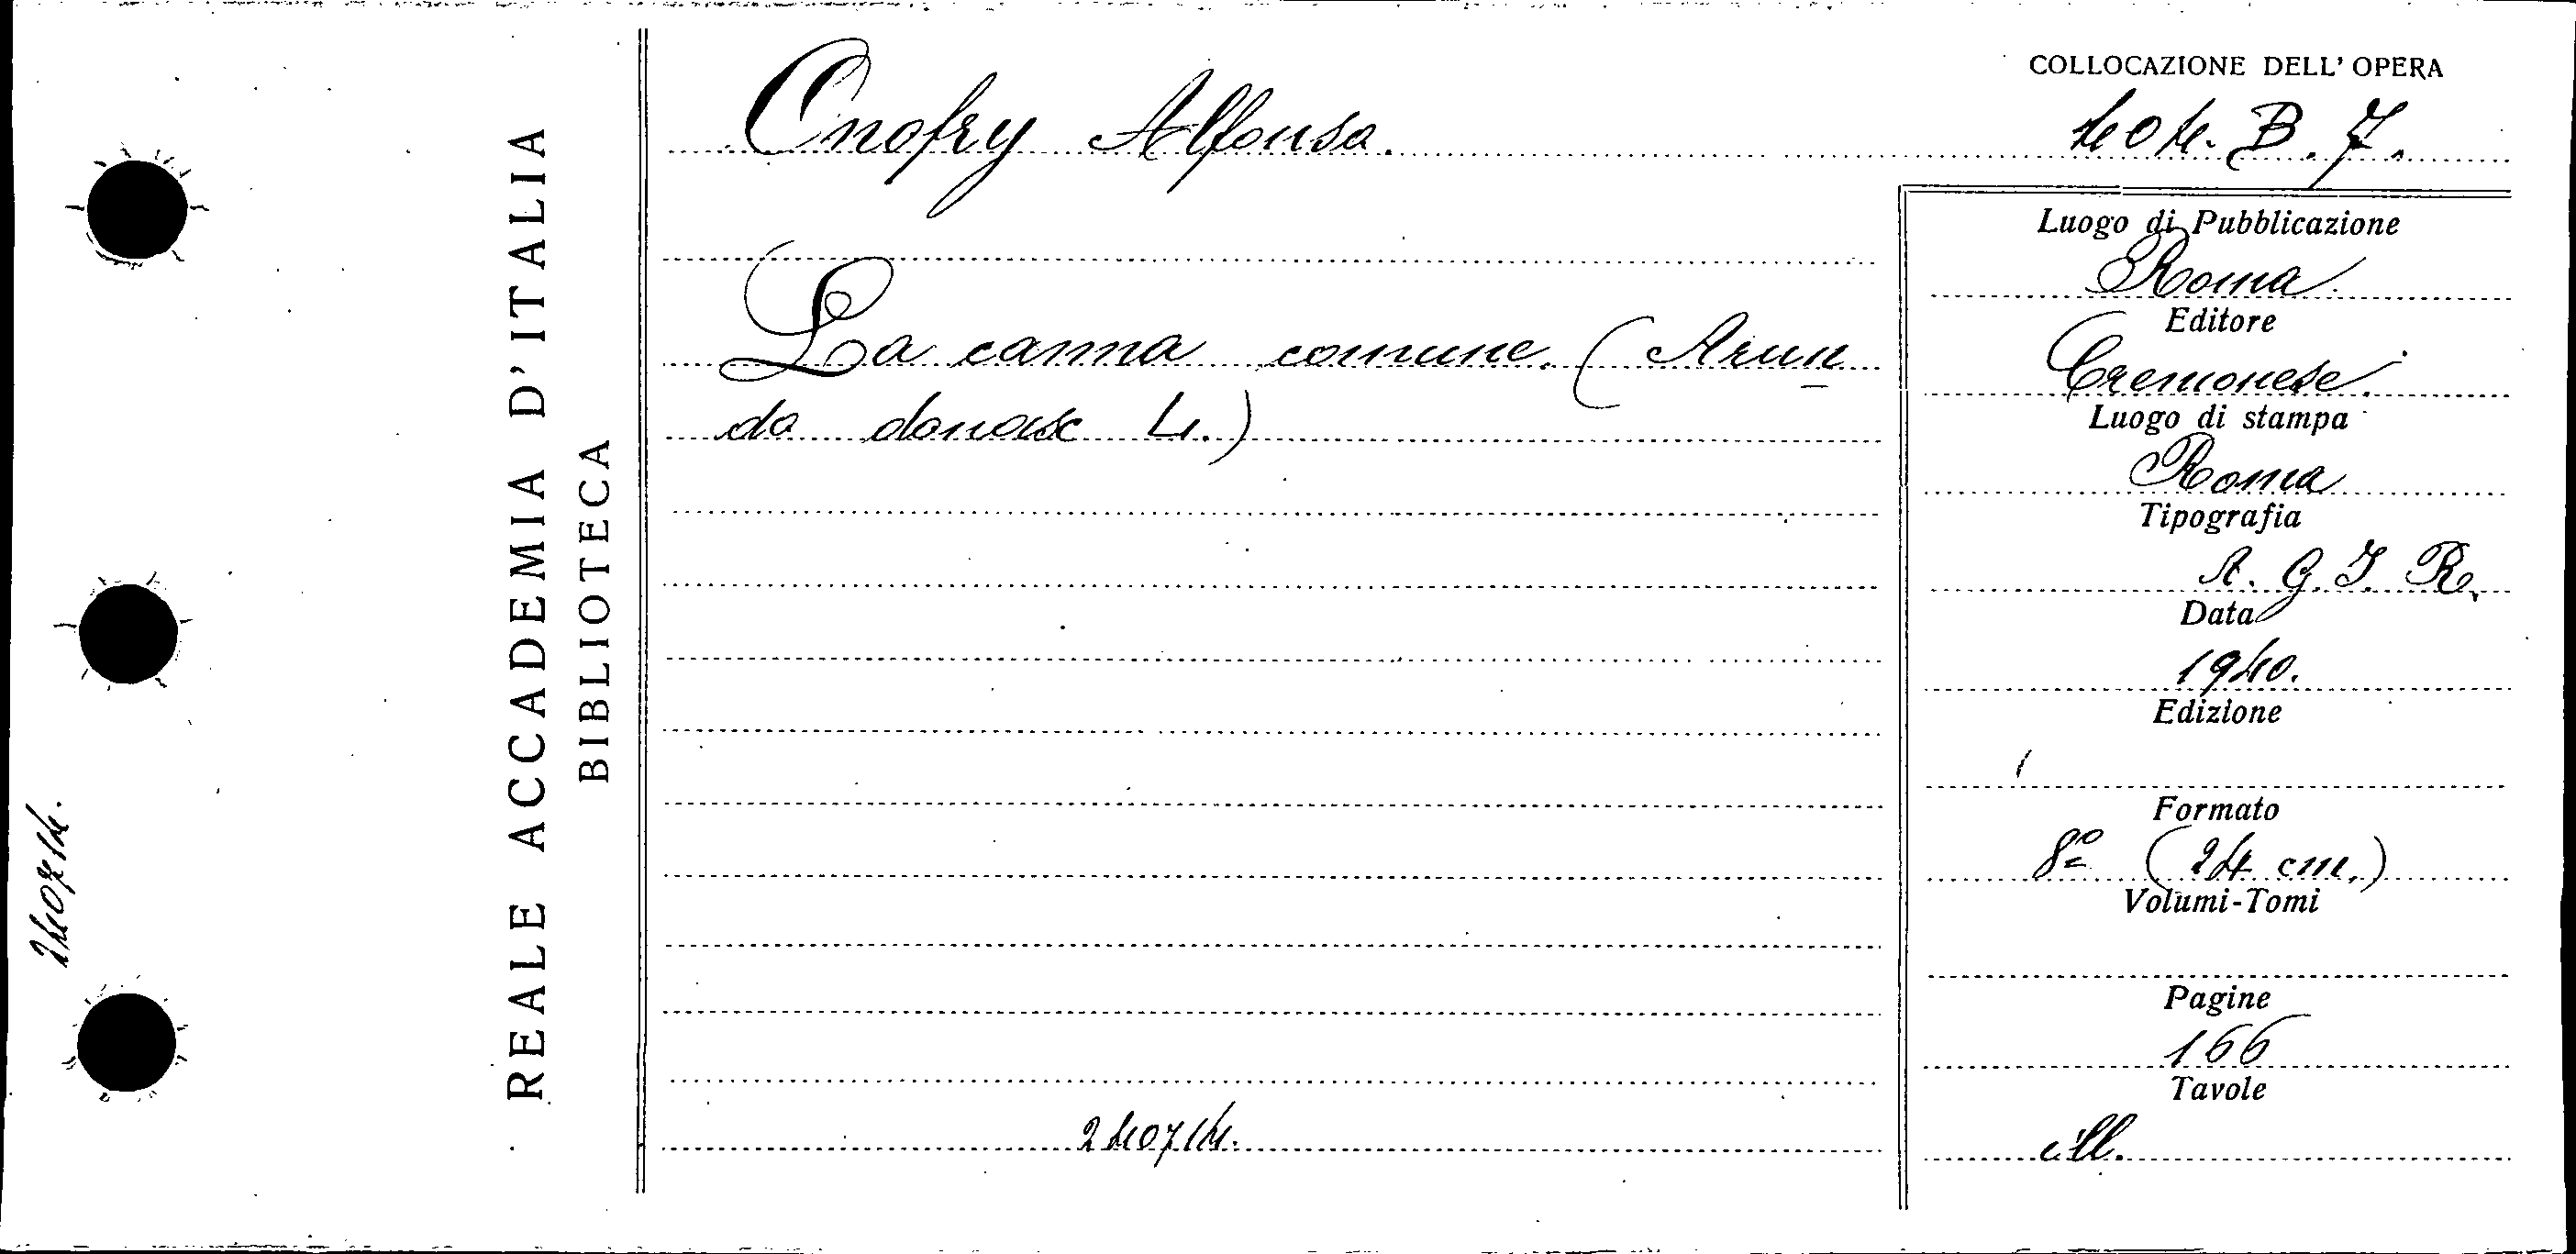 REALE ACCADEMIA D'ITALIA
BIBLIOTECA
240714.
Onofry Alfonso.
La canna comune. (Arun
do donax L.)
240714.
COLLOCAZIONE DELL' OPERA
404. B. 7.
Luogo di Pubblicazione
Roma
Editore
Cremonese.
Luogo di stampa
Roma
Tipografia
A. G. I. R.
Data
1940.
Edizione
Formato
8º (24 cm.)
Volumi-Tomi
Pagine
166
Tavole
ill.